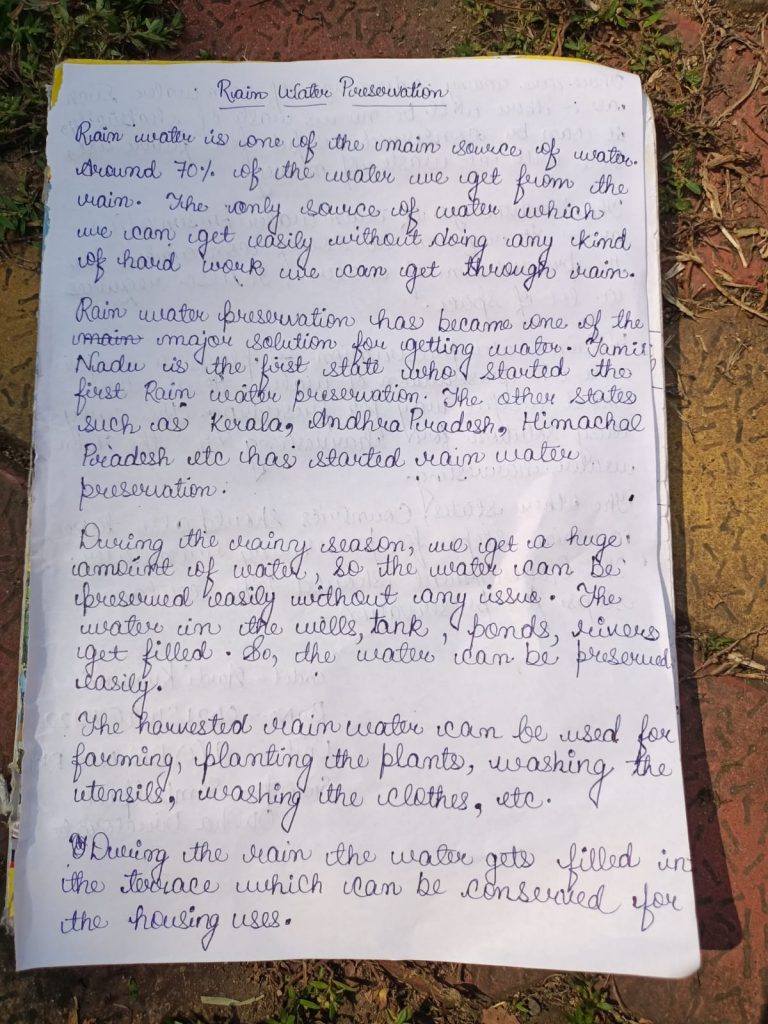 Rain Water Preservation
Rain water is one of the main source of water.
Around 70% of the water we get from the
rain. The only source of water which
we can get easily without doing any kind
of hard work we can get through rain.
Rain water preservation has became one of the
main major solution for getting water. Tamil
Nadu is the first state who started the
first Rain water preservation. The other states
such as Kerala, Andhra Pradesh, Himachal
Pradesh etc has started rain water
preservation.
During the rainy season, we get a huge
amount of water, so the water can be
preserved easily without any issue. The
water in the wells, tank, ponds, rivers
get filled. So, the water can be preserved
easily.
The harvested rain water can be used for
farming, planting the plants, washing the
utensils, washing the clothes, etc.
During the rain the water gets filled in
the terrace which can be conserved for
the housing uses.